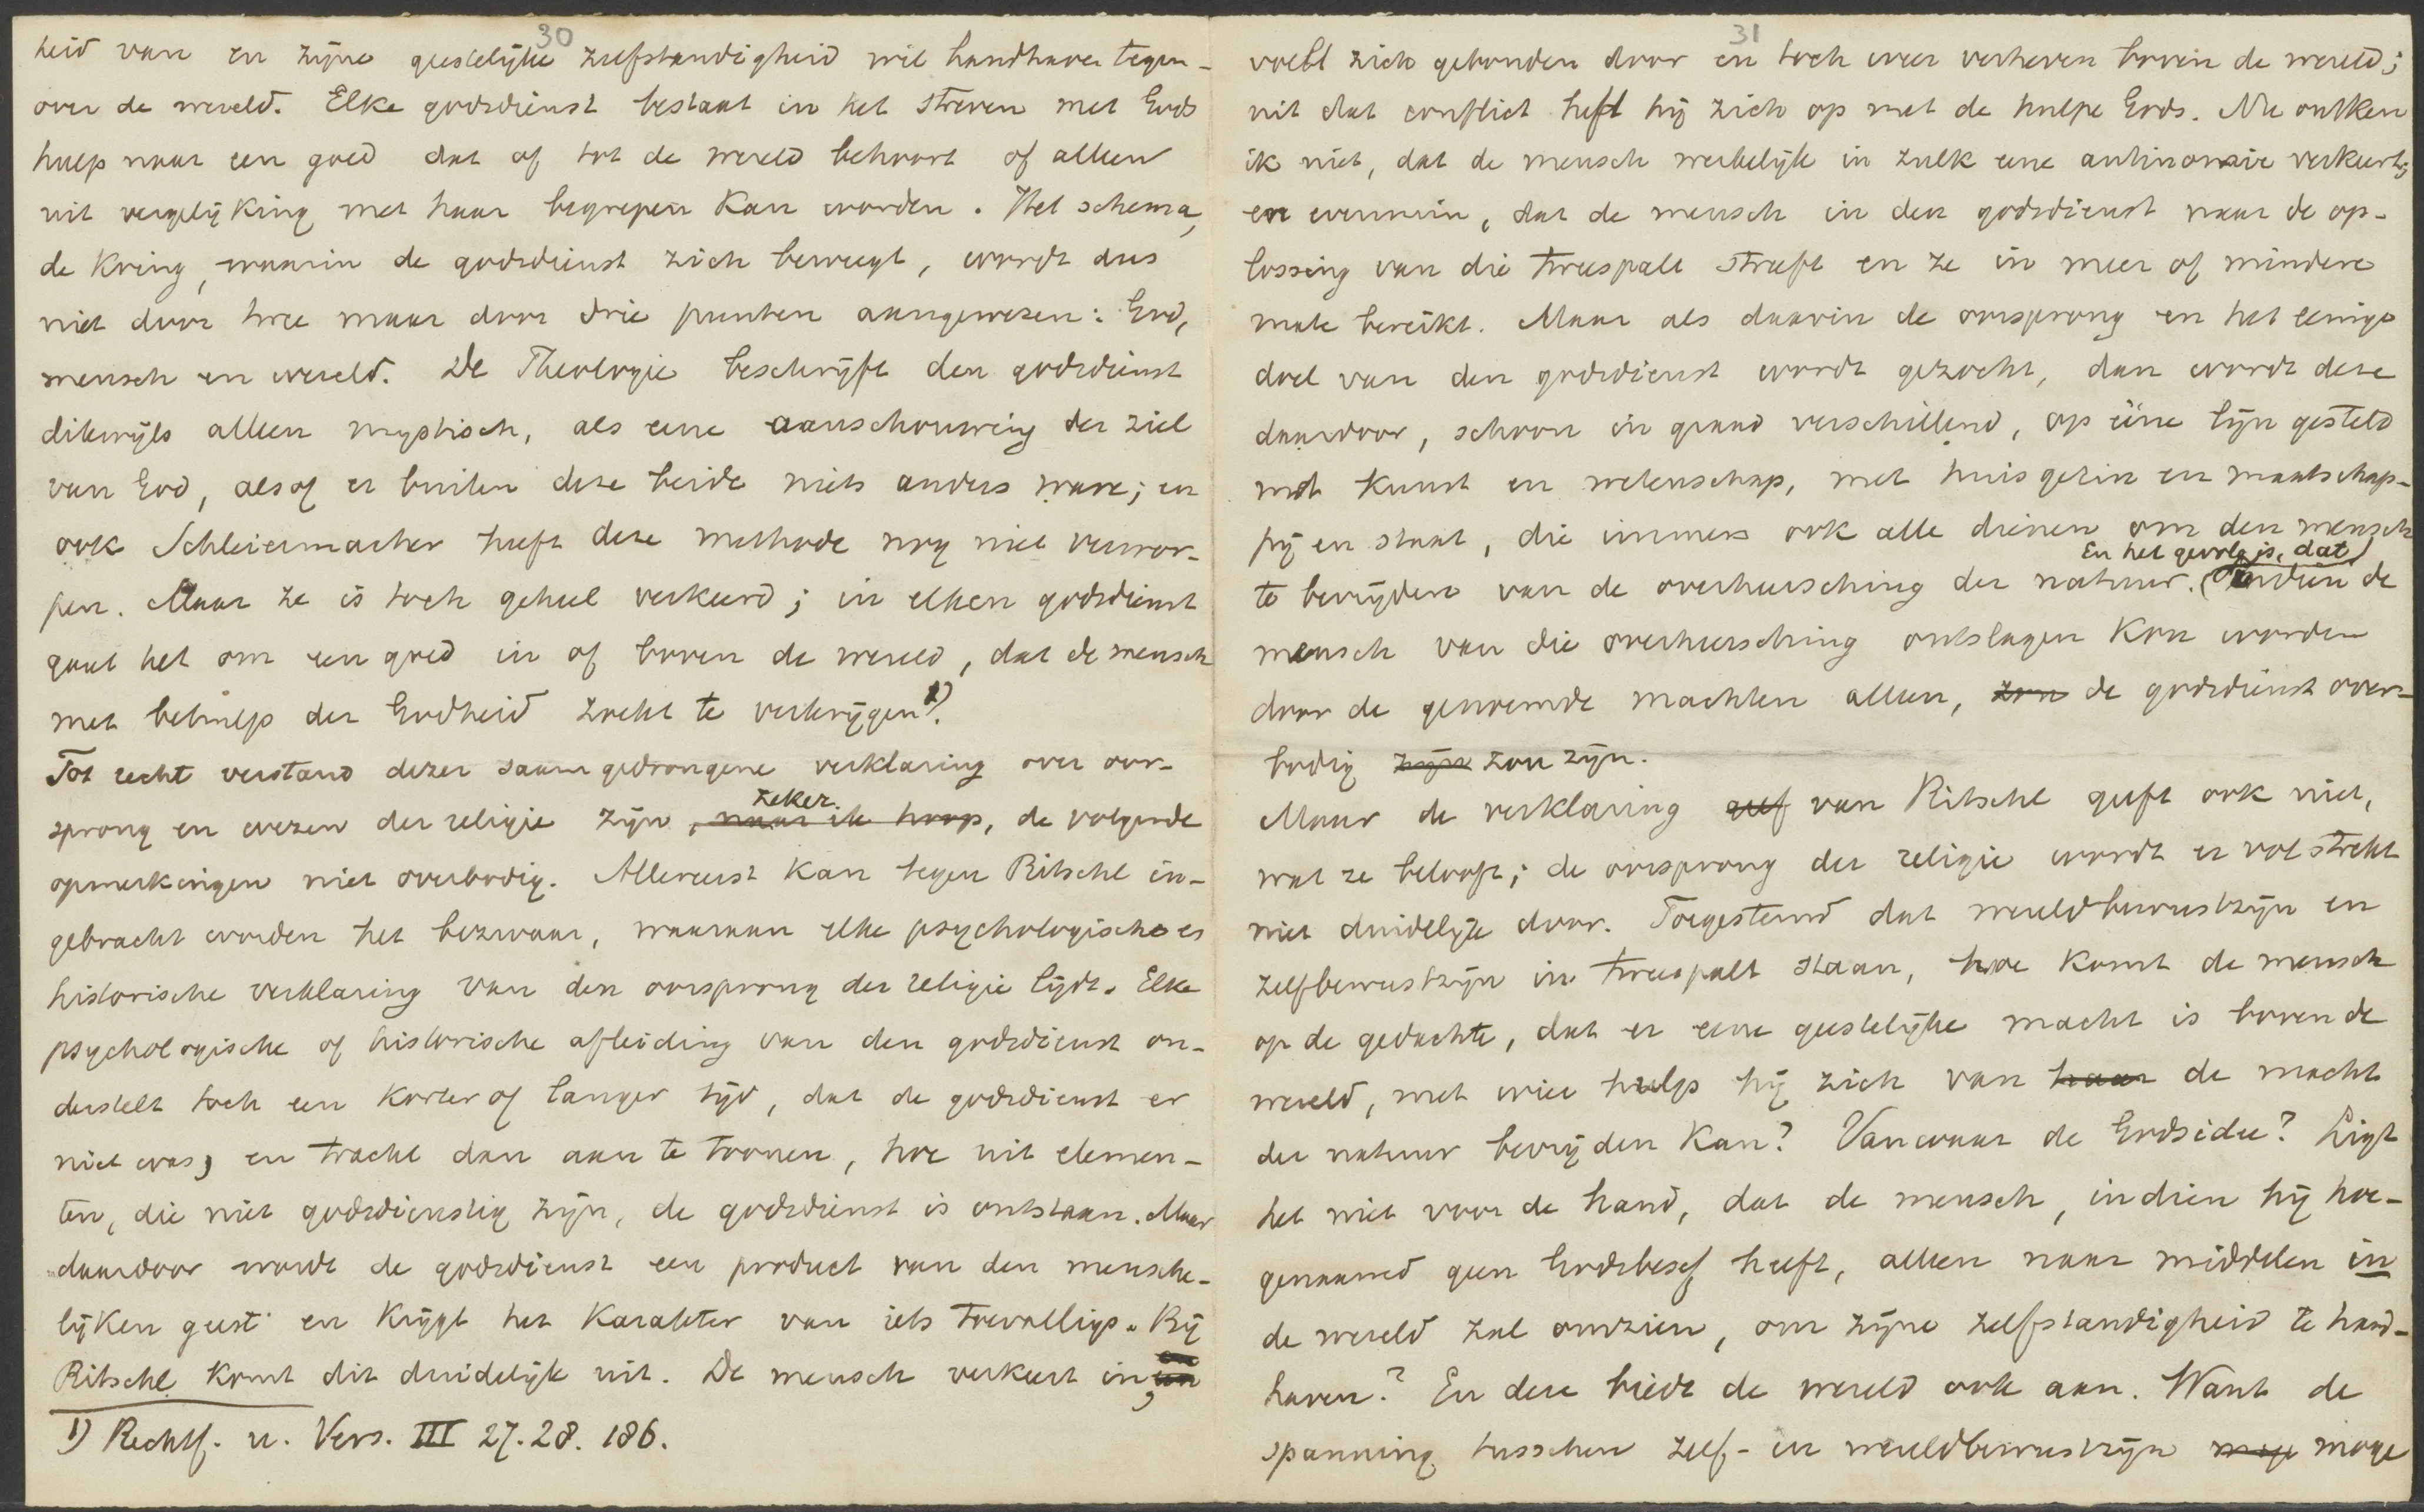 30
heid van en zijne geestelijke zelfstandigheid wil handhaven tegen-
over de wereld. Elke godsdienst bestaat in het streven met Gods
hulp naar een goed dat of tot de wereld behoort of alleen
uit vergelijking met haar begrepen kan worden. Het schema,
de kring, waarin de godsdienst zich beweegt, wordt dus
niet door twee maar door drie punten aangewezen: God,
mensch en wereld. De Theologie beschrijft den godsdienst
dikwijls alleen mystisch, als eene aanschouwing der ziel
van God, alsof er buiten deze beide niets anders ware; en
ook Schleiermacher heeft deze methode nog niet verwor-
pen. Maar ze is toch geheel verkeerd; in elken godsdienst
gaat het om een goed in of boven de wereld, dat de mensch
met behulp der Godheid zoekt te verkrijgen 1).
Tot recht verstand dezer saamgedrongene verklaring over oor-
sprong en wezen der religie zijn zeker, naar ik hoop, de volgende
opmerkingen niet overbodig. Allereerst kan tegen Ritschl in-
gebracht worden het bezwaar, waaraan elke psychologische es
historische verklaring van den oorsprong der religie lijdt. Elke
psychologische of historische afleiding van den godsdienst on-
derstelt toch een korter of langer tijd, dat de godsdienst er
niet was, en tracht dan aan te toonen, hoe uit elemen-
ten, die niet godsdienstig zijn, de godsdienst is ontstaan. Maar
daardoor wordt de godsdienst een product van den mensche-
lijken geest en krijgt het karakter van iets toevalligs. Bij
Ritschl komt dit duidelijk uit. De mensch verkeert in,
1) Rechtf. u. Vers. III 27. 28. 186.
31
voelt zich gebonden door en toch weer verheven boven de wereld;
uit dat conflict heft hij zich op met de hulpe Gods. Nu ontken
ik niet, dat de mensch werkelijk in zulk eene antinomie verkeert;
en evenmin, dat de mensch in den godsdienst naar de op-
lossing van die tweespalt streeft en ze in meer of mindere
mate bereikt. Maar als daarin de oorsprong en het eenige
doel van den godsdienst wordt gezocht, dan wordt deze
daardoor, schoon in graad verschillend, op ééne lijn gesteld
met kunst en wetenschap, met huisgezin en maatschap-
pij en staat, die immers ook alle dienen om den mensch
te bevrijden van de overheersching der natuur. En het gevolg is, dat indien de
mensch van die overheersching ontslagen kon worden
door de genoemde machten alleen, zou de godsdienst over-
bodig zijn zou zijn.
Maar de verklaring geef van Ritschl geeft ook niet,
wat ze belooft; de oorsprong der religie wordt er volstrekt
niet duidelijk door. Toegestemd dat wereldbewustzijn en
zelfbewustzijn in tweespalt staan, hoe komt de mensch
op de gedachte, dat er eene geestelijke macht is boven de
wereld, met wier hulp hij zich van haar de macht
der natuur bevrijden kan? Vanwaar de Godsidee? Ligt
het niet voor de hand, dat de mensch, indien hij hoe-
genaamd geen Godsbesef heeft, alleen naar middelen in
de wereld zal omzien, om zijne zelfstandigheid te hand-
haven? En deze biedt de wereld ook aan. Want de
spanning tusschen zelf- en wereldbewustzijn moge moge